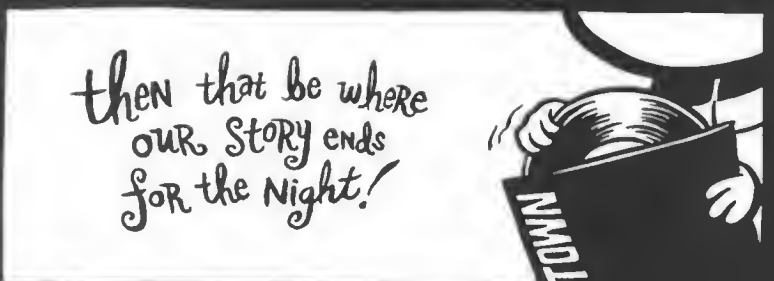 then that be where
our story ends
for the Night!
TOWN